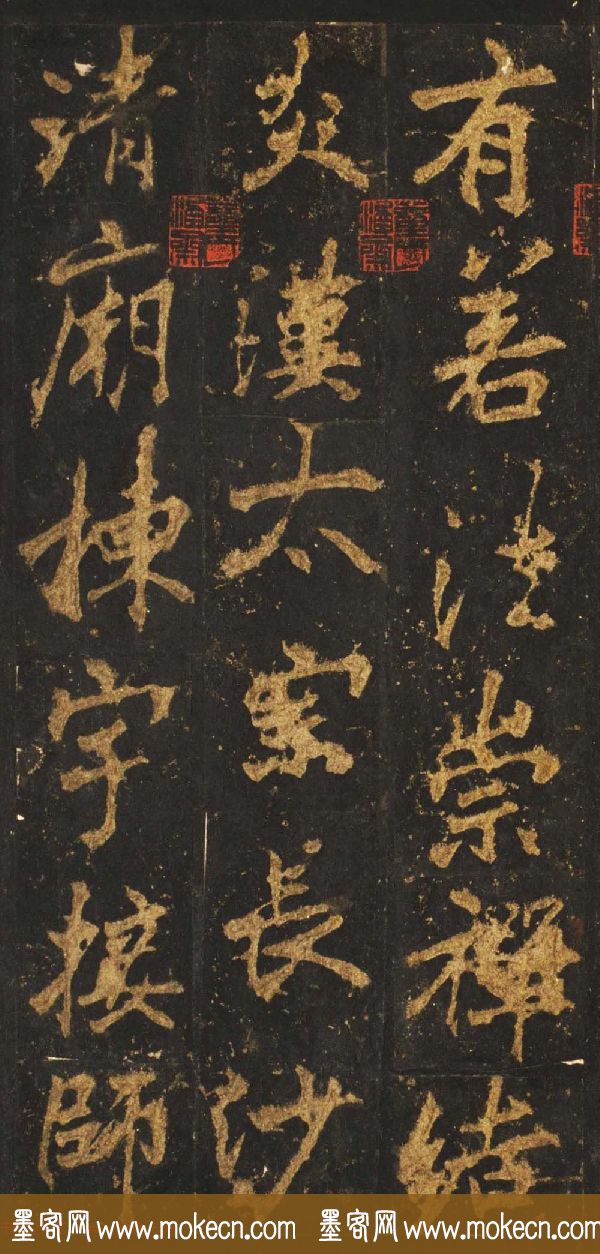 有若法崇禪結
炎漢太宗長沙
清廟棟宇接師
墨客网 www.mokecn.com 墨客网 www.mokecn.com